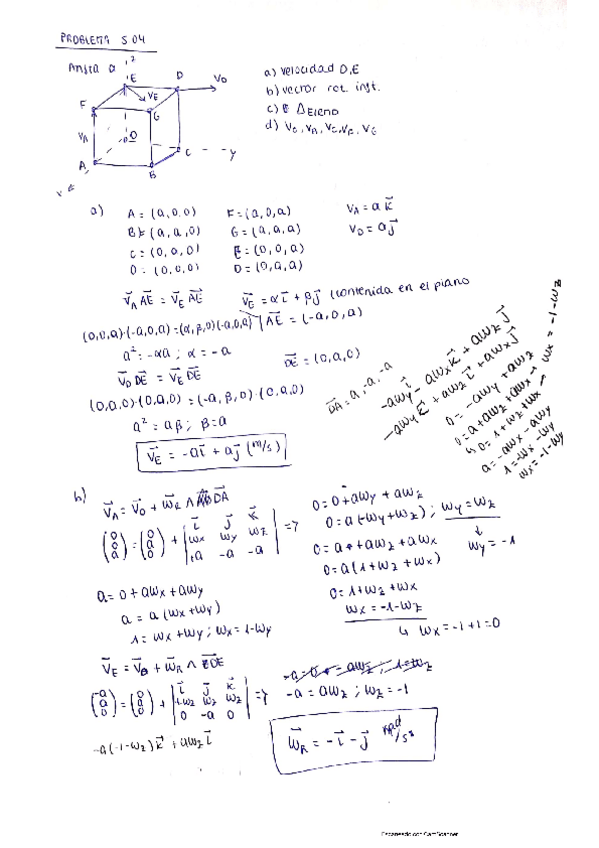 PROBLEMA 5.04
Arista a
a) velocidad D,E
b) vector rot. inst.
c)
d)
z
E
D
V_D
V_E
F
G
V_A
O
A
B
C
y
x
a)
A = (a,0,0)
F = (a,0,a)
V_A = a k
B = (a,a,0)
G = (a,a,a)
V_D = a j
C = (0,a,0)
E = (0,0,a)
O = (0,0,0)
D = (0,a,a)
V_A AE = V_E AE
V_E = αi + βj (contenida en el plano
(0,0,a)·(-a,0,a) = (α,β,0)(-a,0,a)
AE = (-a,0,a)
a² = -αa ; α = -a
V_D DE = V_E DE
DE = (0,a,0)
(0,a,0)·(0,a,0) = (-a,β,0)·(0,a,0)
a² = aβ ; β = a
V_E = -ai + aj (m/s)
DA = a, -a, -a
-aw_y i - aw_x k + aw_z j
-aw_y k + aw_z i + aw_x j
0 = -aw_y + aw_z
0 = a + aw_z + aw_x
0 = 1 + w_z + w_x → w_x = -1 - w_z
a = -aw_x - aw_y
1 = -w_x - w_y
w_x = -1 - w_y
b)
V_A = V_D + w_R ∧ DA
i j k
w_x w_y w_z
a -a -a
a = 0 + aw_x + aw_y
a = a(w_x + w_y)
1 = w_x + w_y ; w_x = 1 - w_y
0 = 0 + aw_y + aw_z
0 = a(-w_y + w_z) ; w_y = w_z
w_y = -1
0 = a + aw_z + aw_x
0 = a(1 + w_z + w_x)
0 = 1 + w_z + w_x
w_x = -1 - w_z
w_x = -1 + 1 = 0
V_E = V_D + w_R ∧ DE
i j k
0 -a 0
-a = aw_z ; w_z = -1
-a(-1-w_z)k + aw_z i
w_R = -i - j rad/s
Escaneado con CamScanner